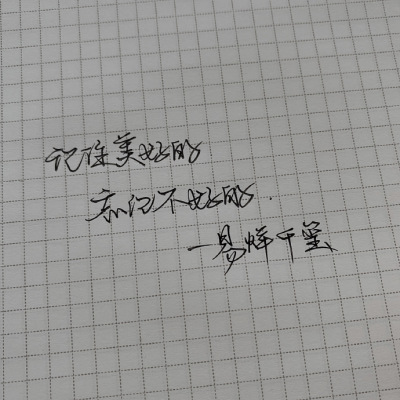 记住美好的
忘记不好的.
—易烊千玺